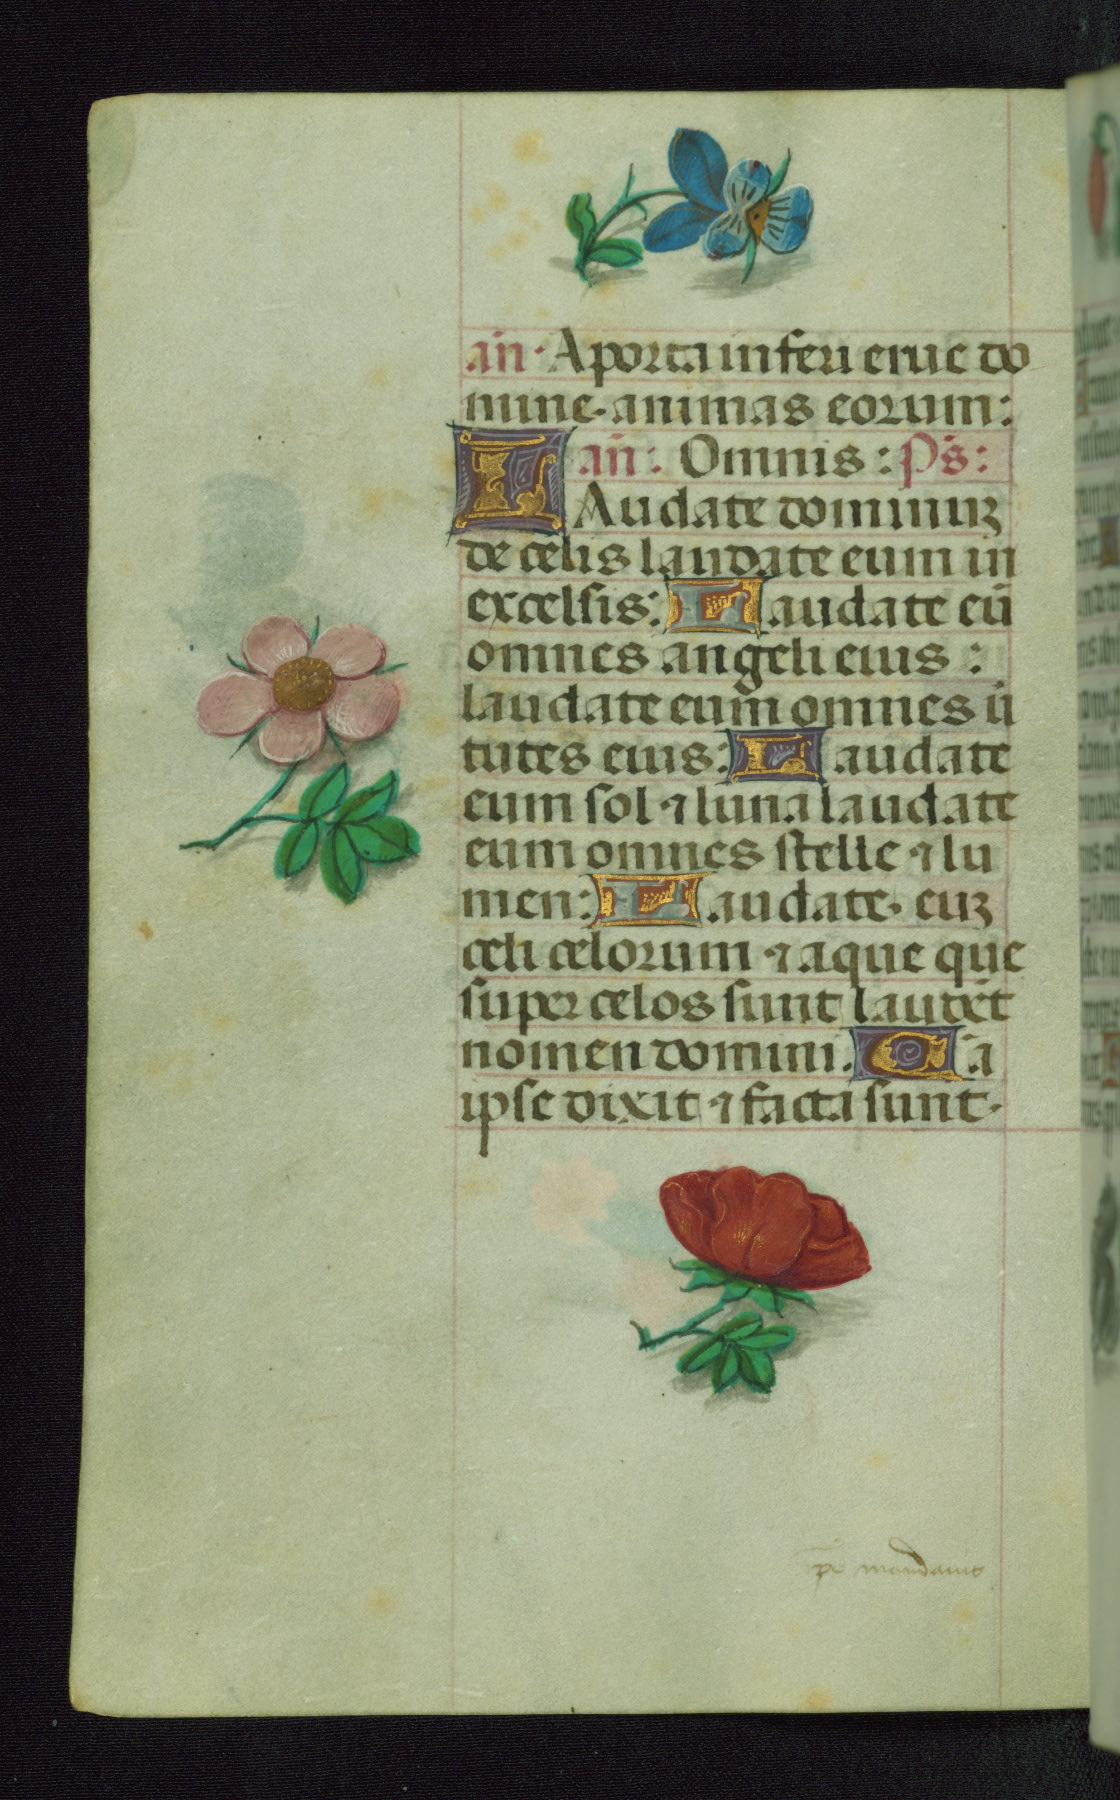 an̄· A porta inferi erue do
mine· animas eorum:
an̄: Omnis: Ps:
LAudate dominuꝫ
de celis laudate eum in
excelsis: Laudate eū
omnes angeli eius :
laudate eum omnes ũ
tutes eius: Laudate
eum sol ⁊ luna laudate
eum omnes stelle ⁊ lu
men: Laudate· euꝫ
celi celorum ⁊ aque que
super celos sunt laudēt
nomen domini. Q̄a
ipse dixit ⁊ facta sunt·
mandauit